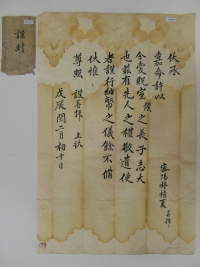 謹封
密陽朴 夏 再拜
伏承
嘉命許以
令愛貺室僕之長子志大
也玆有先人之禮敬遣使
者謹行納幣之儀餘不備
伏惟
尊照 謹再拜 上狀
戊辰閏二月初十日